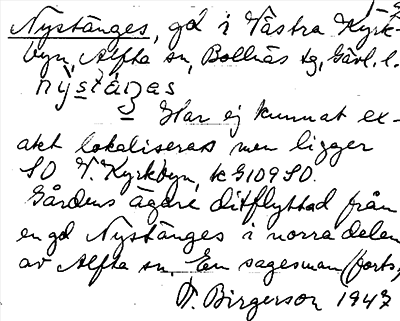 Nystänges, gd i Västra Kyrk-
byn, Alfta sn, Bollnäs tg, Gävl. l.
nystäŋas
Har ej kunnat ex-
akt lokaliseras men ligger
SO V. Kyrkbyn, k G109 SO.
Gårdens ägare ditflyttad från
en gd Nystänges i norra delen
av Alfta sn. En sagesman (forts.)
V. Birgerson 1947